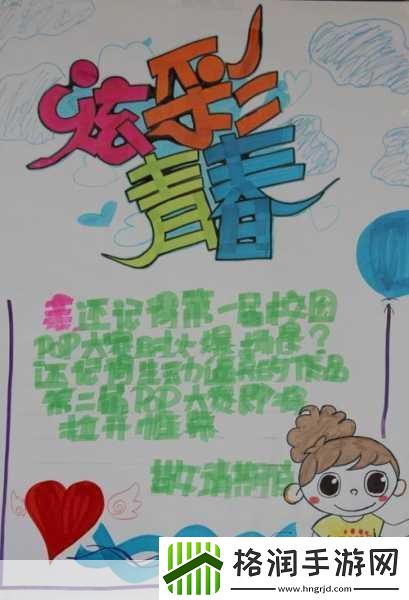 炫彩
青春
亲还记得第一届校园
POP大赛的火爆场景？
还记得生动逼真的作品
第二届POP大赛即将
拉开帷幕
敬请期待
格润手游网
www.hngrjd.com